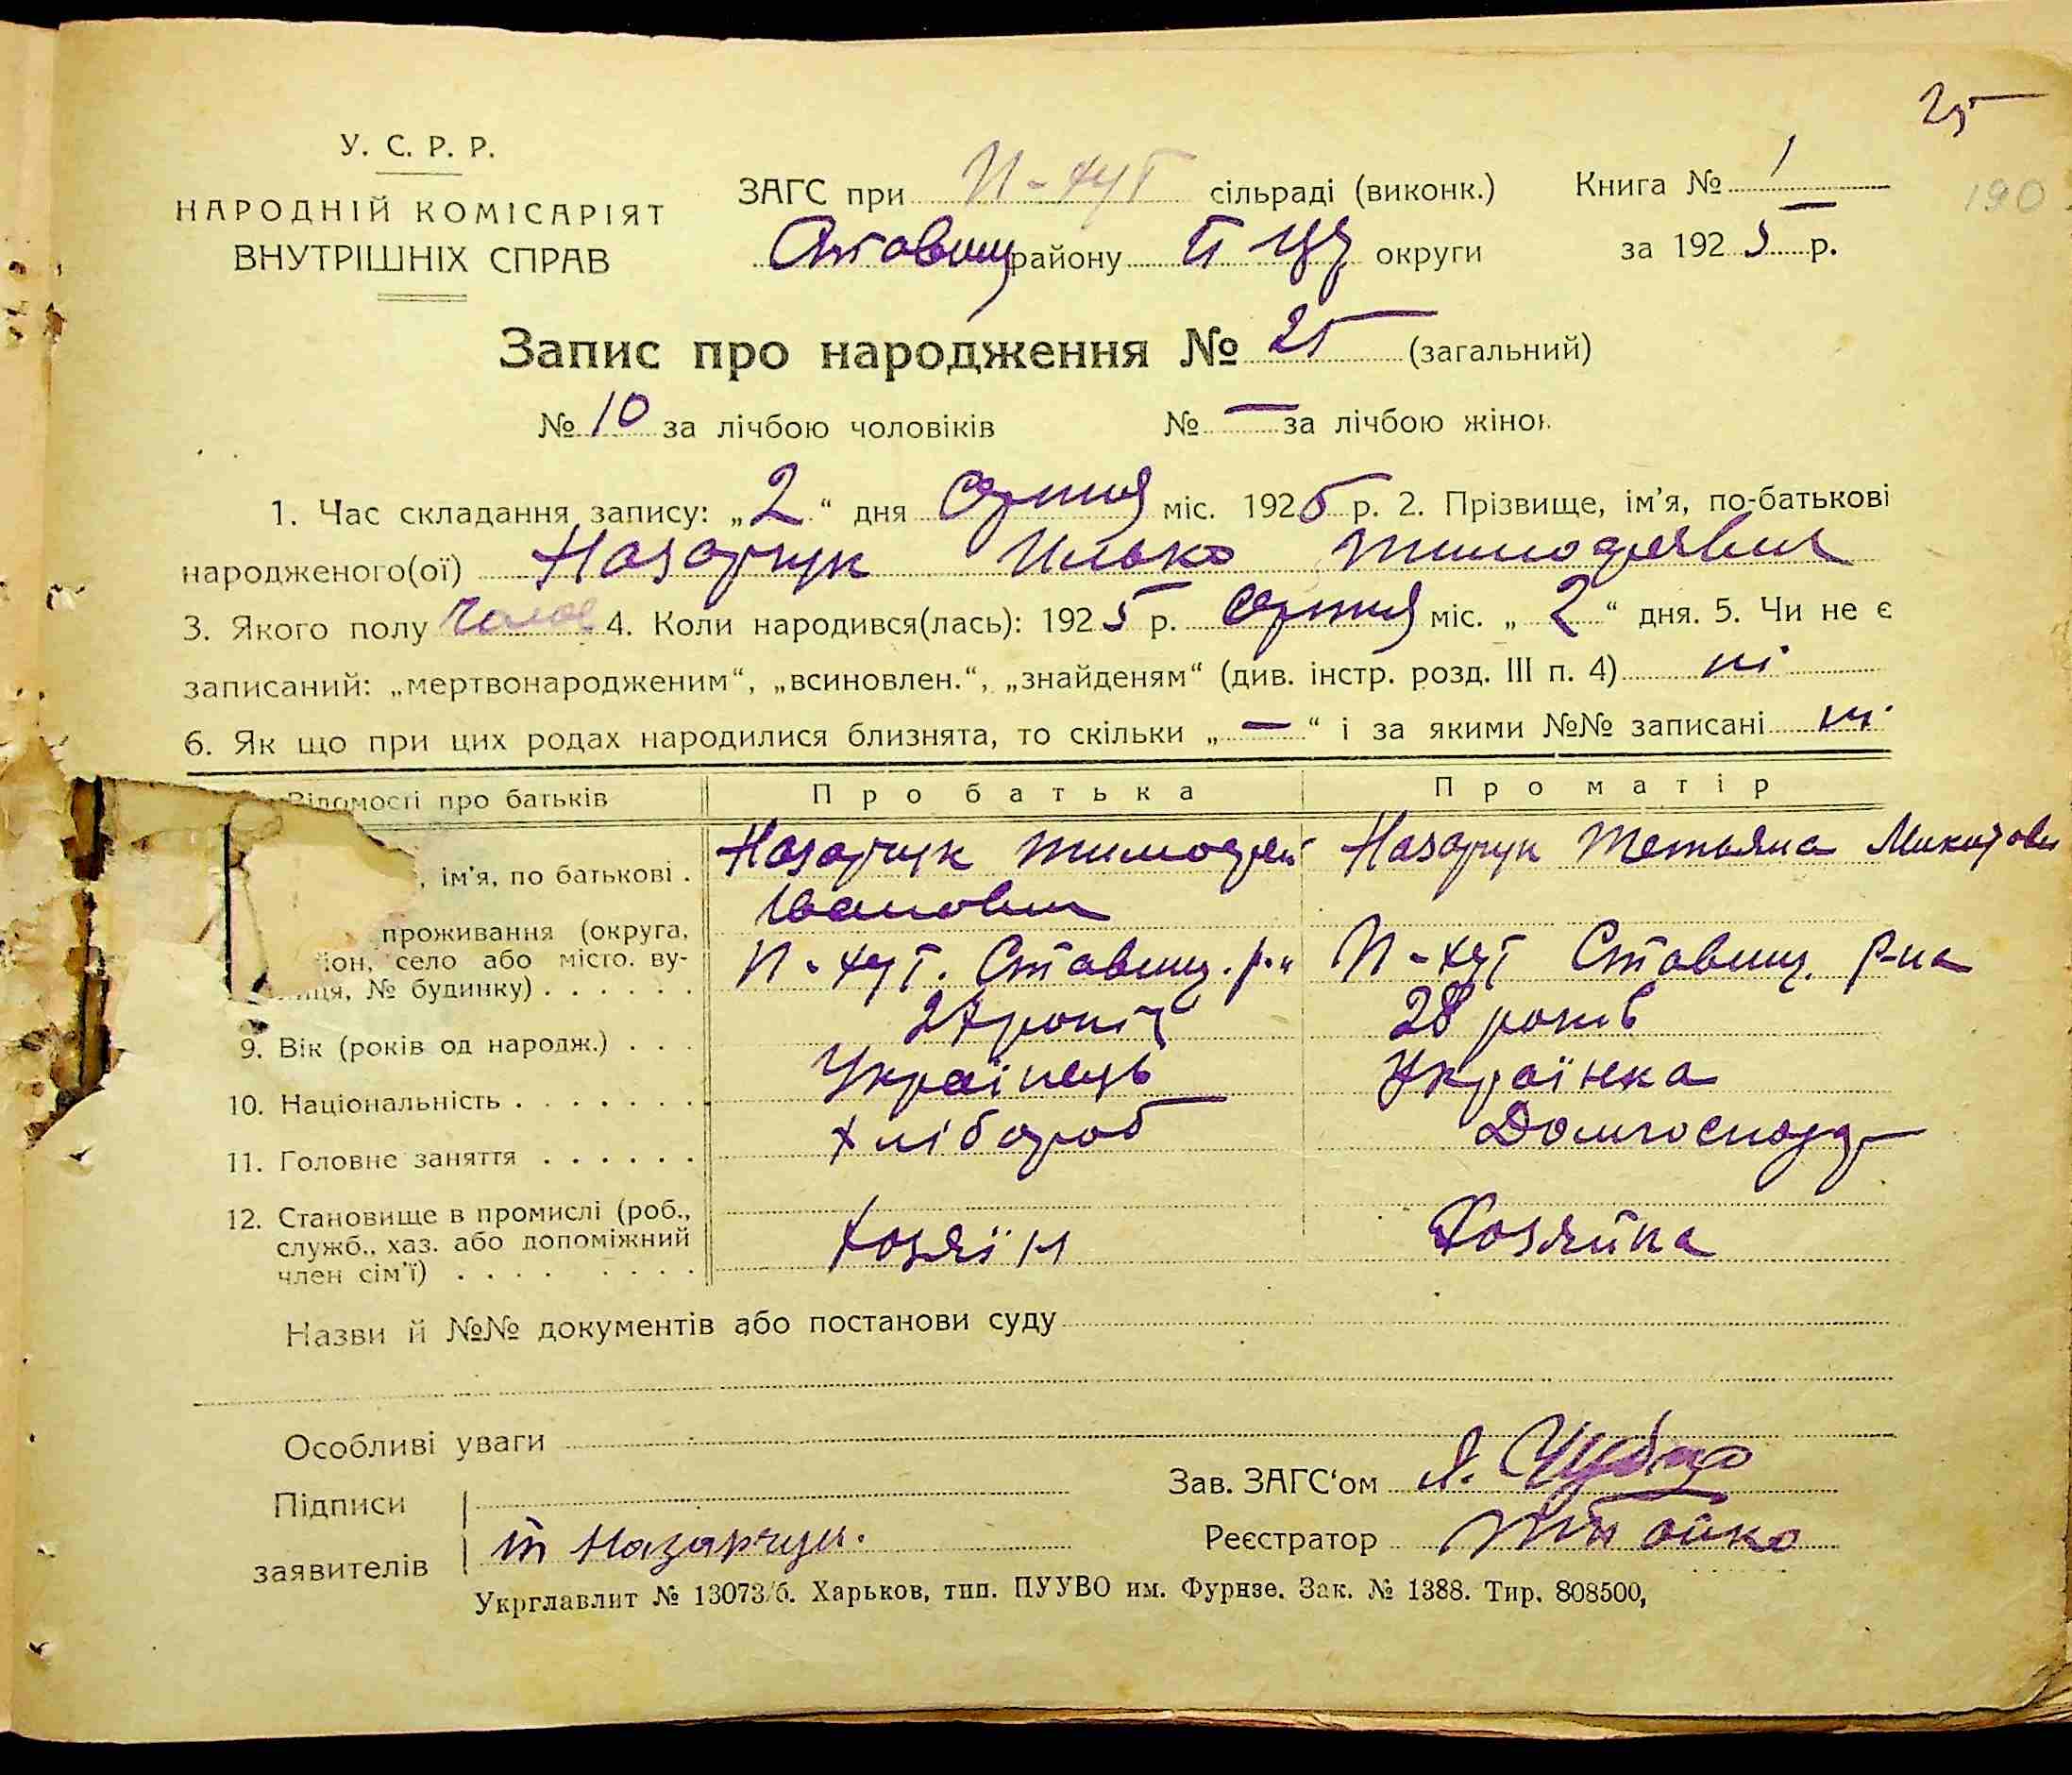 25
190
У. С. Р. Р.
НАРОДНІЙ КОМІСАРІЯТ
ВНУТРІШНІХ СПРАВ
ЗАГС при И-хут сільраді (виконк.) Книга № 1
Ставищ району БЦ округи за 1925 р.
Запис про народження № 25 (загальний)
№ 10 за лічбою чоловіків № — за лічбою жінок
1. Час складання запису: „2“ дня Серпня міс. 1925 р. 2. Прізвище, ім’я, по-батькові
народженого(ої) Назарчук Илько Тимофієвич
3. Якого полу Чолов 4. Коли народився(лась): 1925 р. Серпня міс. „2“ дня. 5. Чи не є
записаний: „мертвонародженим“, „всиновлен.“, „знайденям“ (див. інстр. розд. III п. 4) ні
6. Як що при цих родах народилися близнята, то скільки „—“ і за якими №№ записані ні
Відомості про батьків Про батька Про матір
, ім’я, по батькові . Назарчук Тимофей Назарчук Тетьяна Микитовн
Іванович
проживання (округа,
йон, село або місто, ву- И-хут. Ставищ. р-н И-хут Ставищ. Р-на
лиця, № будинку) . . . . . .
9. Вік (років од народж.) . . . 27 років 28 років
10. Національність . . . . . . . Українець Українка
11. Головне заняття . . . . . . Хлібороб Домгоспод
12. Становище в промислі (роб.,
служб., хаз. або допоміжний Хозяїн Хозяйка
член сім’ї) . . . . . . . .
Назви й №№ документів або постанови суду
Особливі уваги
Зав. ЗАГС‘ом
Підписи
заявителів Назарчук. Реєстратор
Укрглавлит № 13073/б. Харьков, тип. ПУУВО им. Фурнзе. Зак. № 1388. Тир. 808500,